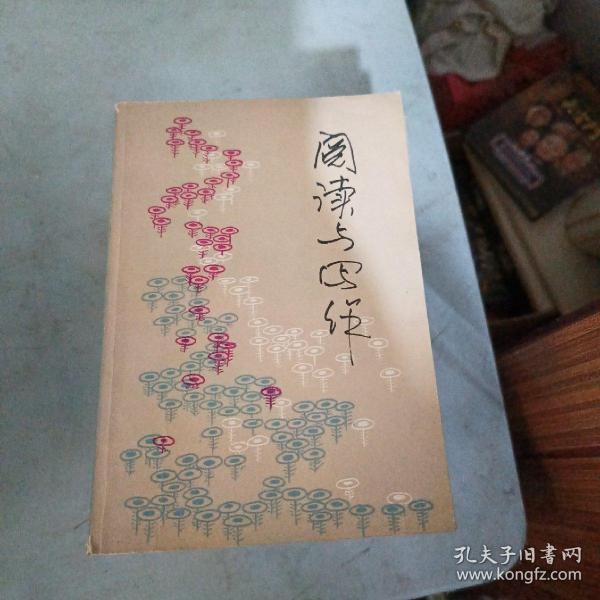 阅读与写作
孔夫子旧书网
www.kongfz.com